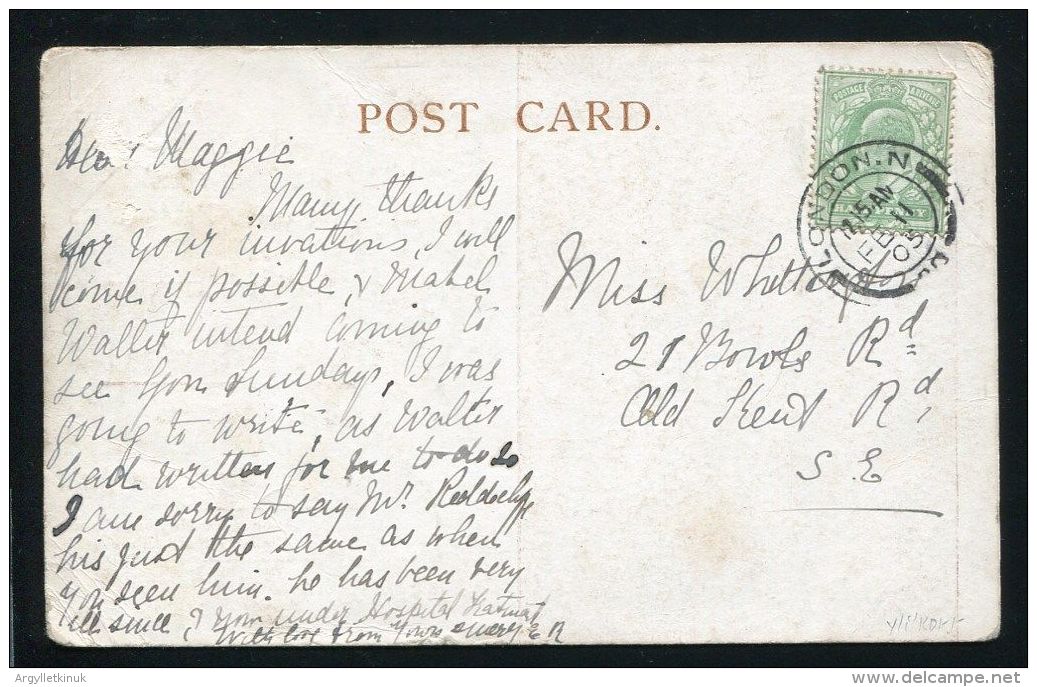 POST CARD.
Dear Maggie
Many thanks
for your invations, I will
come if possible, & Mabel
Walter intend coming to
see you Sunday, I was
going to write, as Walter
had written for me to do so
I am sorry to say Mr.
his just the same as when
you seen him. he has been very
ill since, I now under Hospital
With love from Yours E R
POSTAGE & REVENUE
LONDON. N
12.15 AM
FE 11
05
Miss
21 Bowls Rd
Old Kent Rd,
S. E
Argylletkinuk
www.delcampe.net